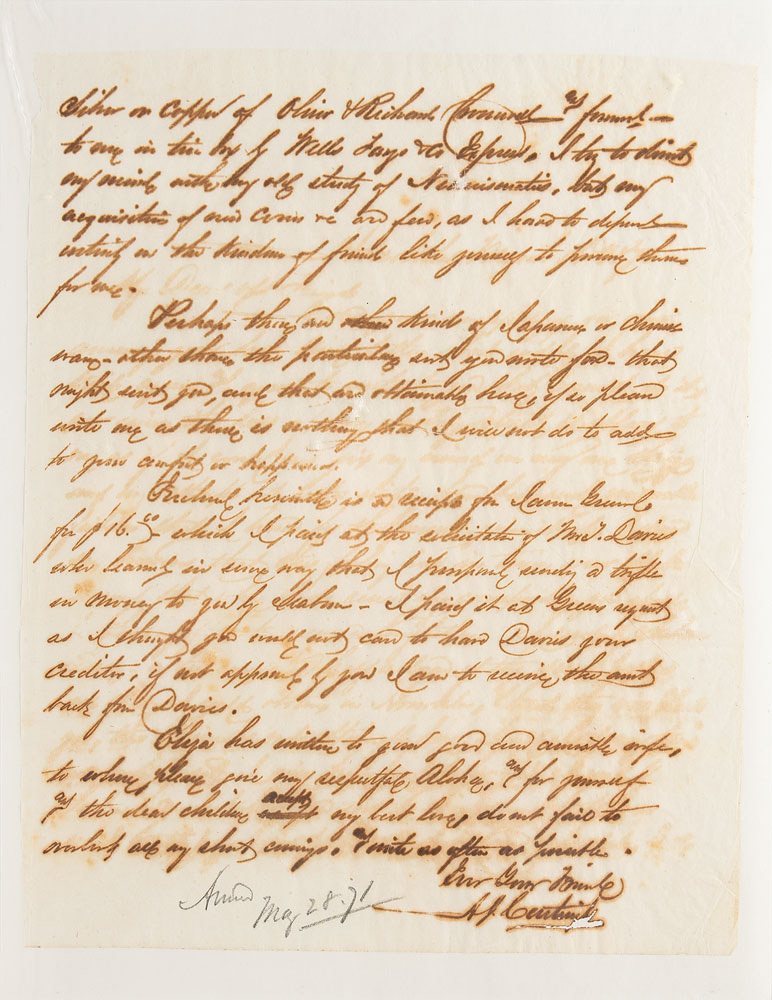 Silver or copper of Oliver & Richard Cromwell yʳ forward
to me in tin box by Wells Fargo & Co Express. I try to divert
my mind with my old study of Numismatics, but my
acquisition of new coins &c are few, as I have to depend
entirely on the kindness of friends like yourself to procure them
for me.
Perhaps there are other kinds of Japanese or Chinese
ware - other than the particular set you wrote for - that
might suit you, and that are obtainable here, if so please
write me as there is nothing that I will not do to add
to your comfort or happiness.
Enclosed herewith is a receipt from Green
for $16.50 which I paid at the solicitation of Mr T. Davies
who learned in some way that I proposed sending a trifle
in money to you by - I paid it at Greens request
as I thought you would not care to have Davies your
creditor, if not approved by you I am to receive the amt
back from Davies.
Eliza has written to your good and amiable wife,
to whom please give my respectful Aloha, & for yourself
& the dear children accept my best love, do not fail to
overlook all my short comings. & write as often as possible.
Ever Your Friend
A J Cartwright
May 28. 71